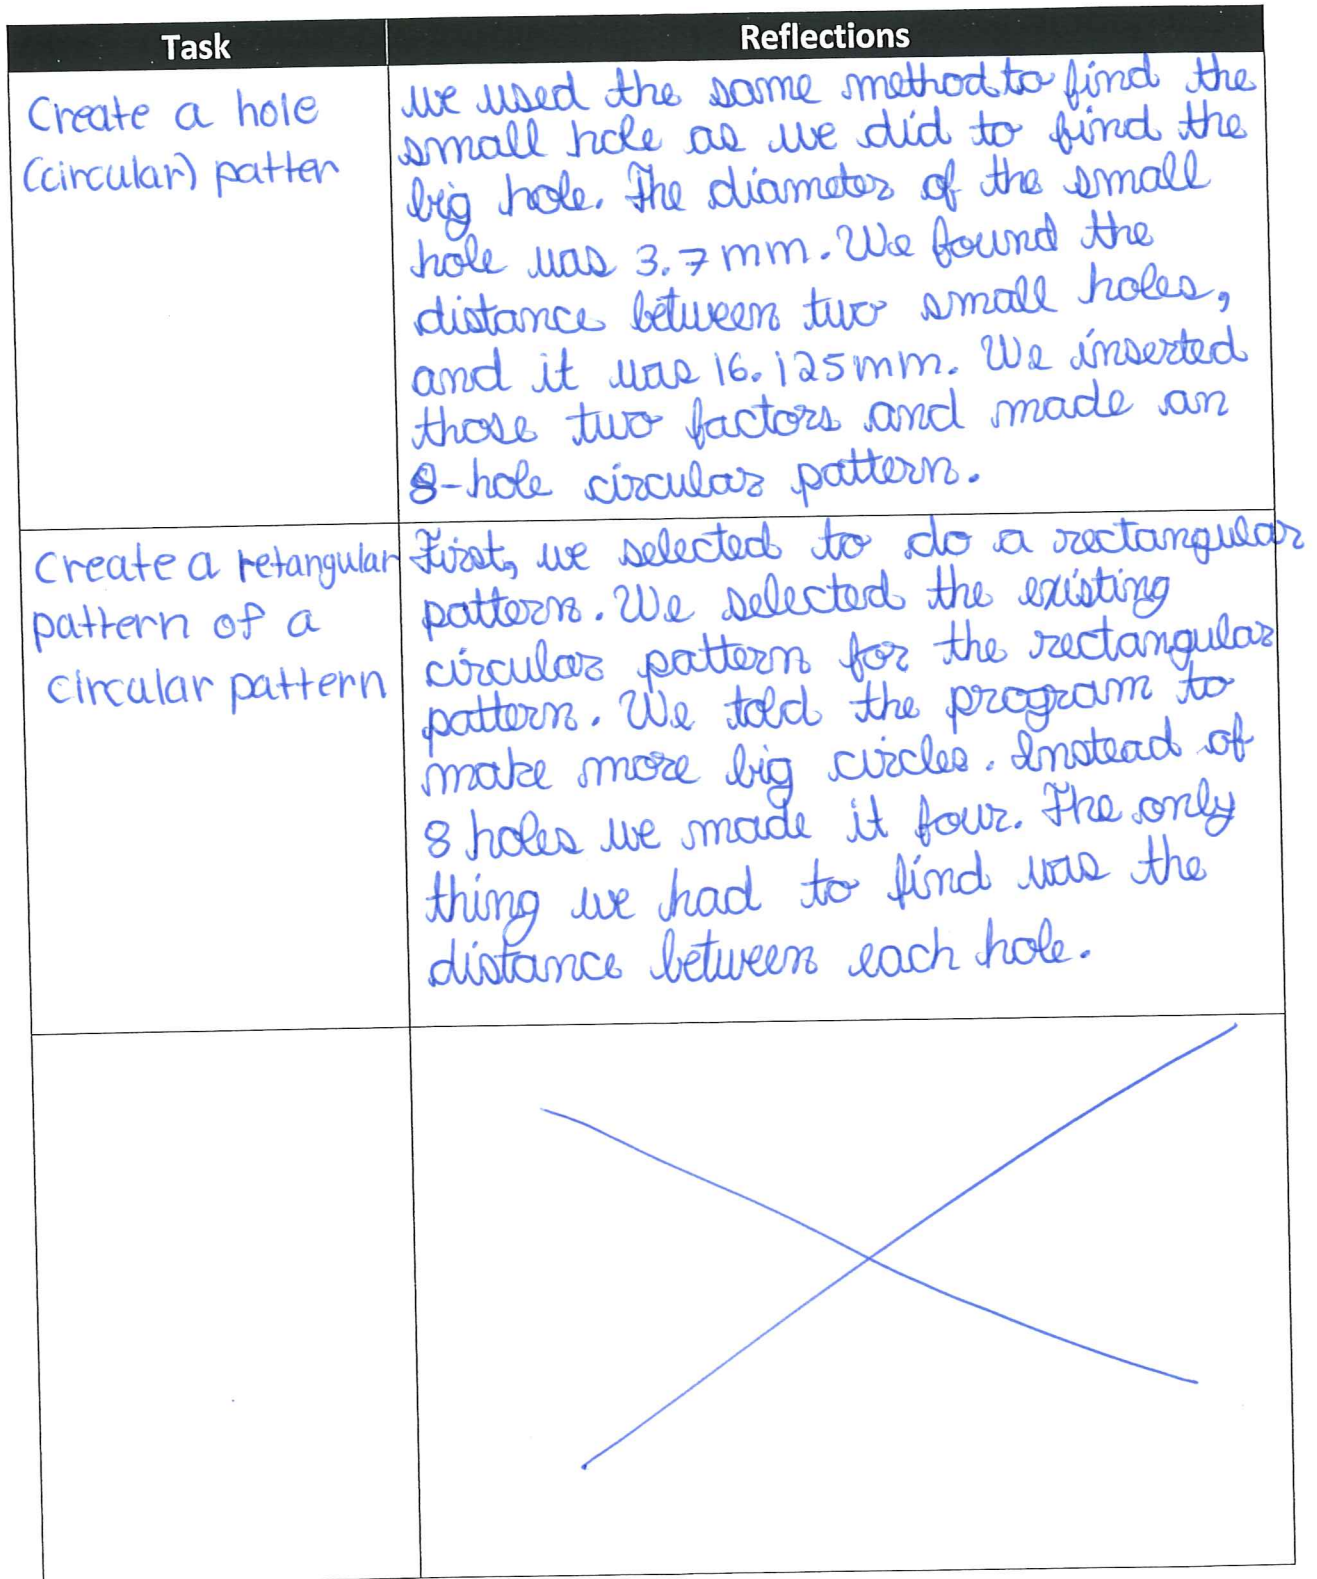 Task
Reflections
Create a hole
(circular) patter
we used the same method to find the
small hole as we did to find the
big hole. The diameter of the small
hole was 3.7mm. We found the
distance between two small holes,
and it was 16.125mm. We inserted
those two factors and made an
8-hole circular pattern.
Create a retangular
pattern of a
circular pattern
First, we selected to do a rectangular
pattern. We selected the existing
circular pattern for the rectangular
pattern. We told the program to
make more big circles. Instead of
8 holes we made it four. The only
thing we had to find was the
distance between each hole.